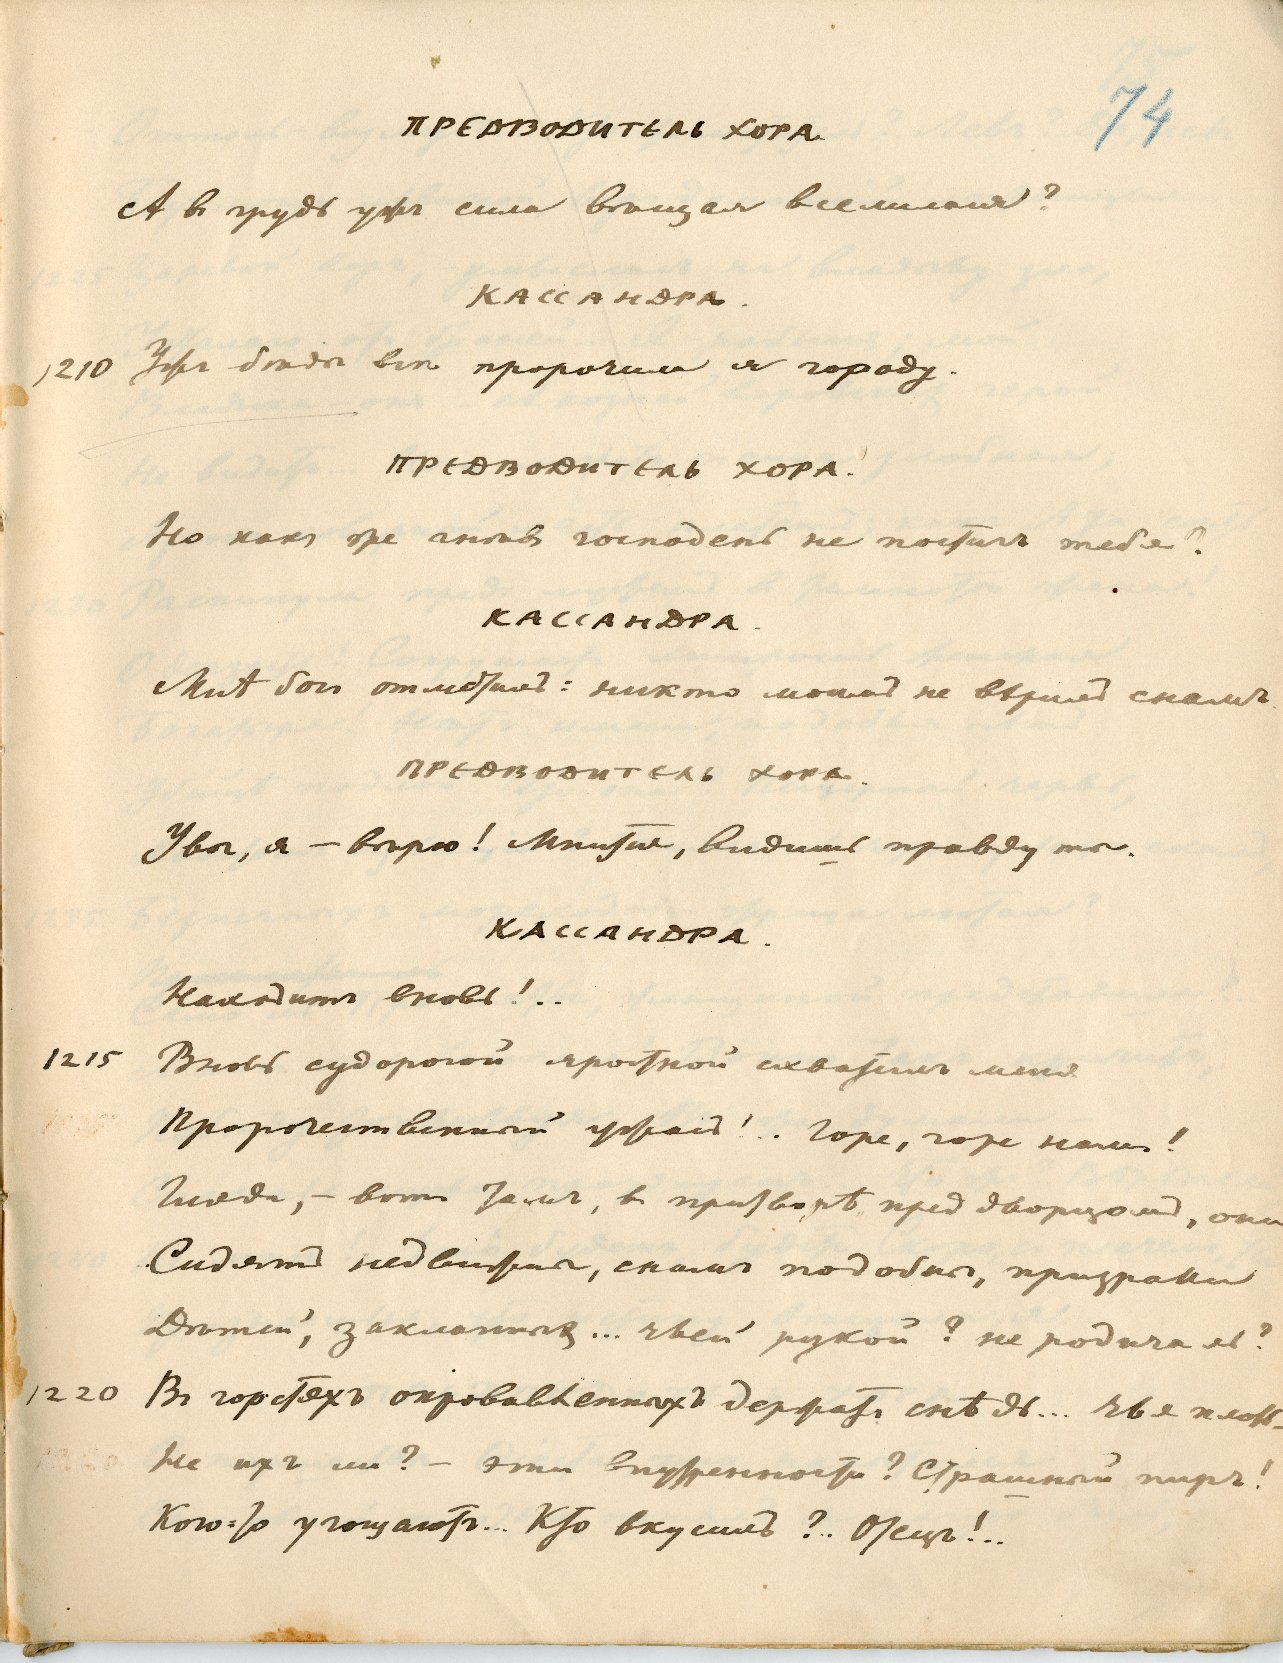 74
ПРЕДВОДИТЕЛЬ ХОРА.
А въ грудь ужъ сила вѣщая вселилася?
КАССАНДРА.
1210 Ужъ бѣды всѣ пророчила я городу.
ПРЕДВОДИТЕЛЬ ХОРА.
Но какъ же гнѣвъ господень не постигъ тебя?
КАССАНДРА.
Мнѣ богъ отмстилъ: никто моимъ не вѣрилъ снамъ.
ПРЕДВОДИТЕЛЬ ХОРА.
Увы, я – вѣрю! Мнится, видишь правду ты.
КАССАНДРА.
Находитъ вновь!..
1215 Вновь судорогой яростной схватилъ меня
Пророчественный ужасъ!.. Горе, горе намъ!
Гляди, – вотъ тамъ, въ притворѣ предъ дворцомъ, они
Сидятъ недвижны, снамъ подобны, призраки
Дѣтей, закланныхъ... чьей рукой? не родича ль?
1220 Въ горстяхъ окровавленныхъ держатъ снѣдь... Чья плоть –
Не ихъ ли? – эти внутренности? Страшный пиръ!
Кого-то угощаютъ... Кто вкусилъ?.. Отецъ!..